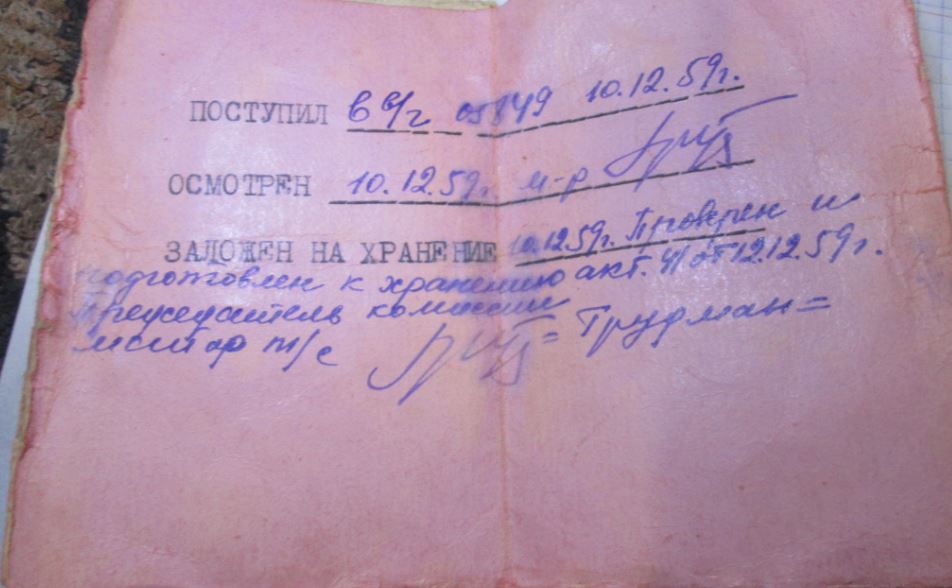 ПОСТУПИЛ в в/г 05849 10.12.59г.
ОСМОТРЕН 10.12.59г. м-р
ЗАЛОЖЕН НА ХРАНЕНИЕ 10.12.59г. Проверен и
подготовлен к хранению акт. от 12.12.59г.
председатель комиссии
майор т/с = Трудман =